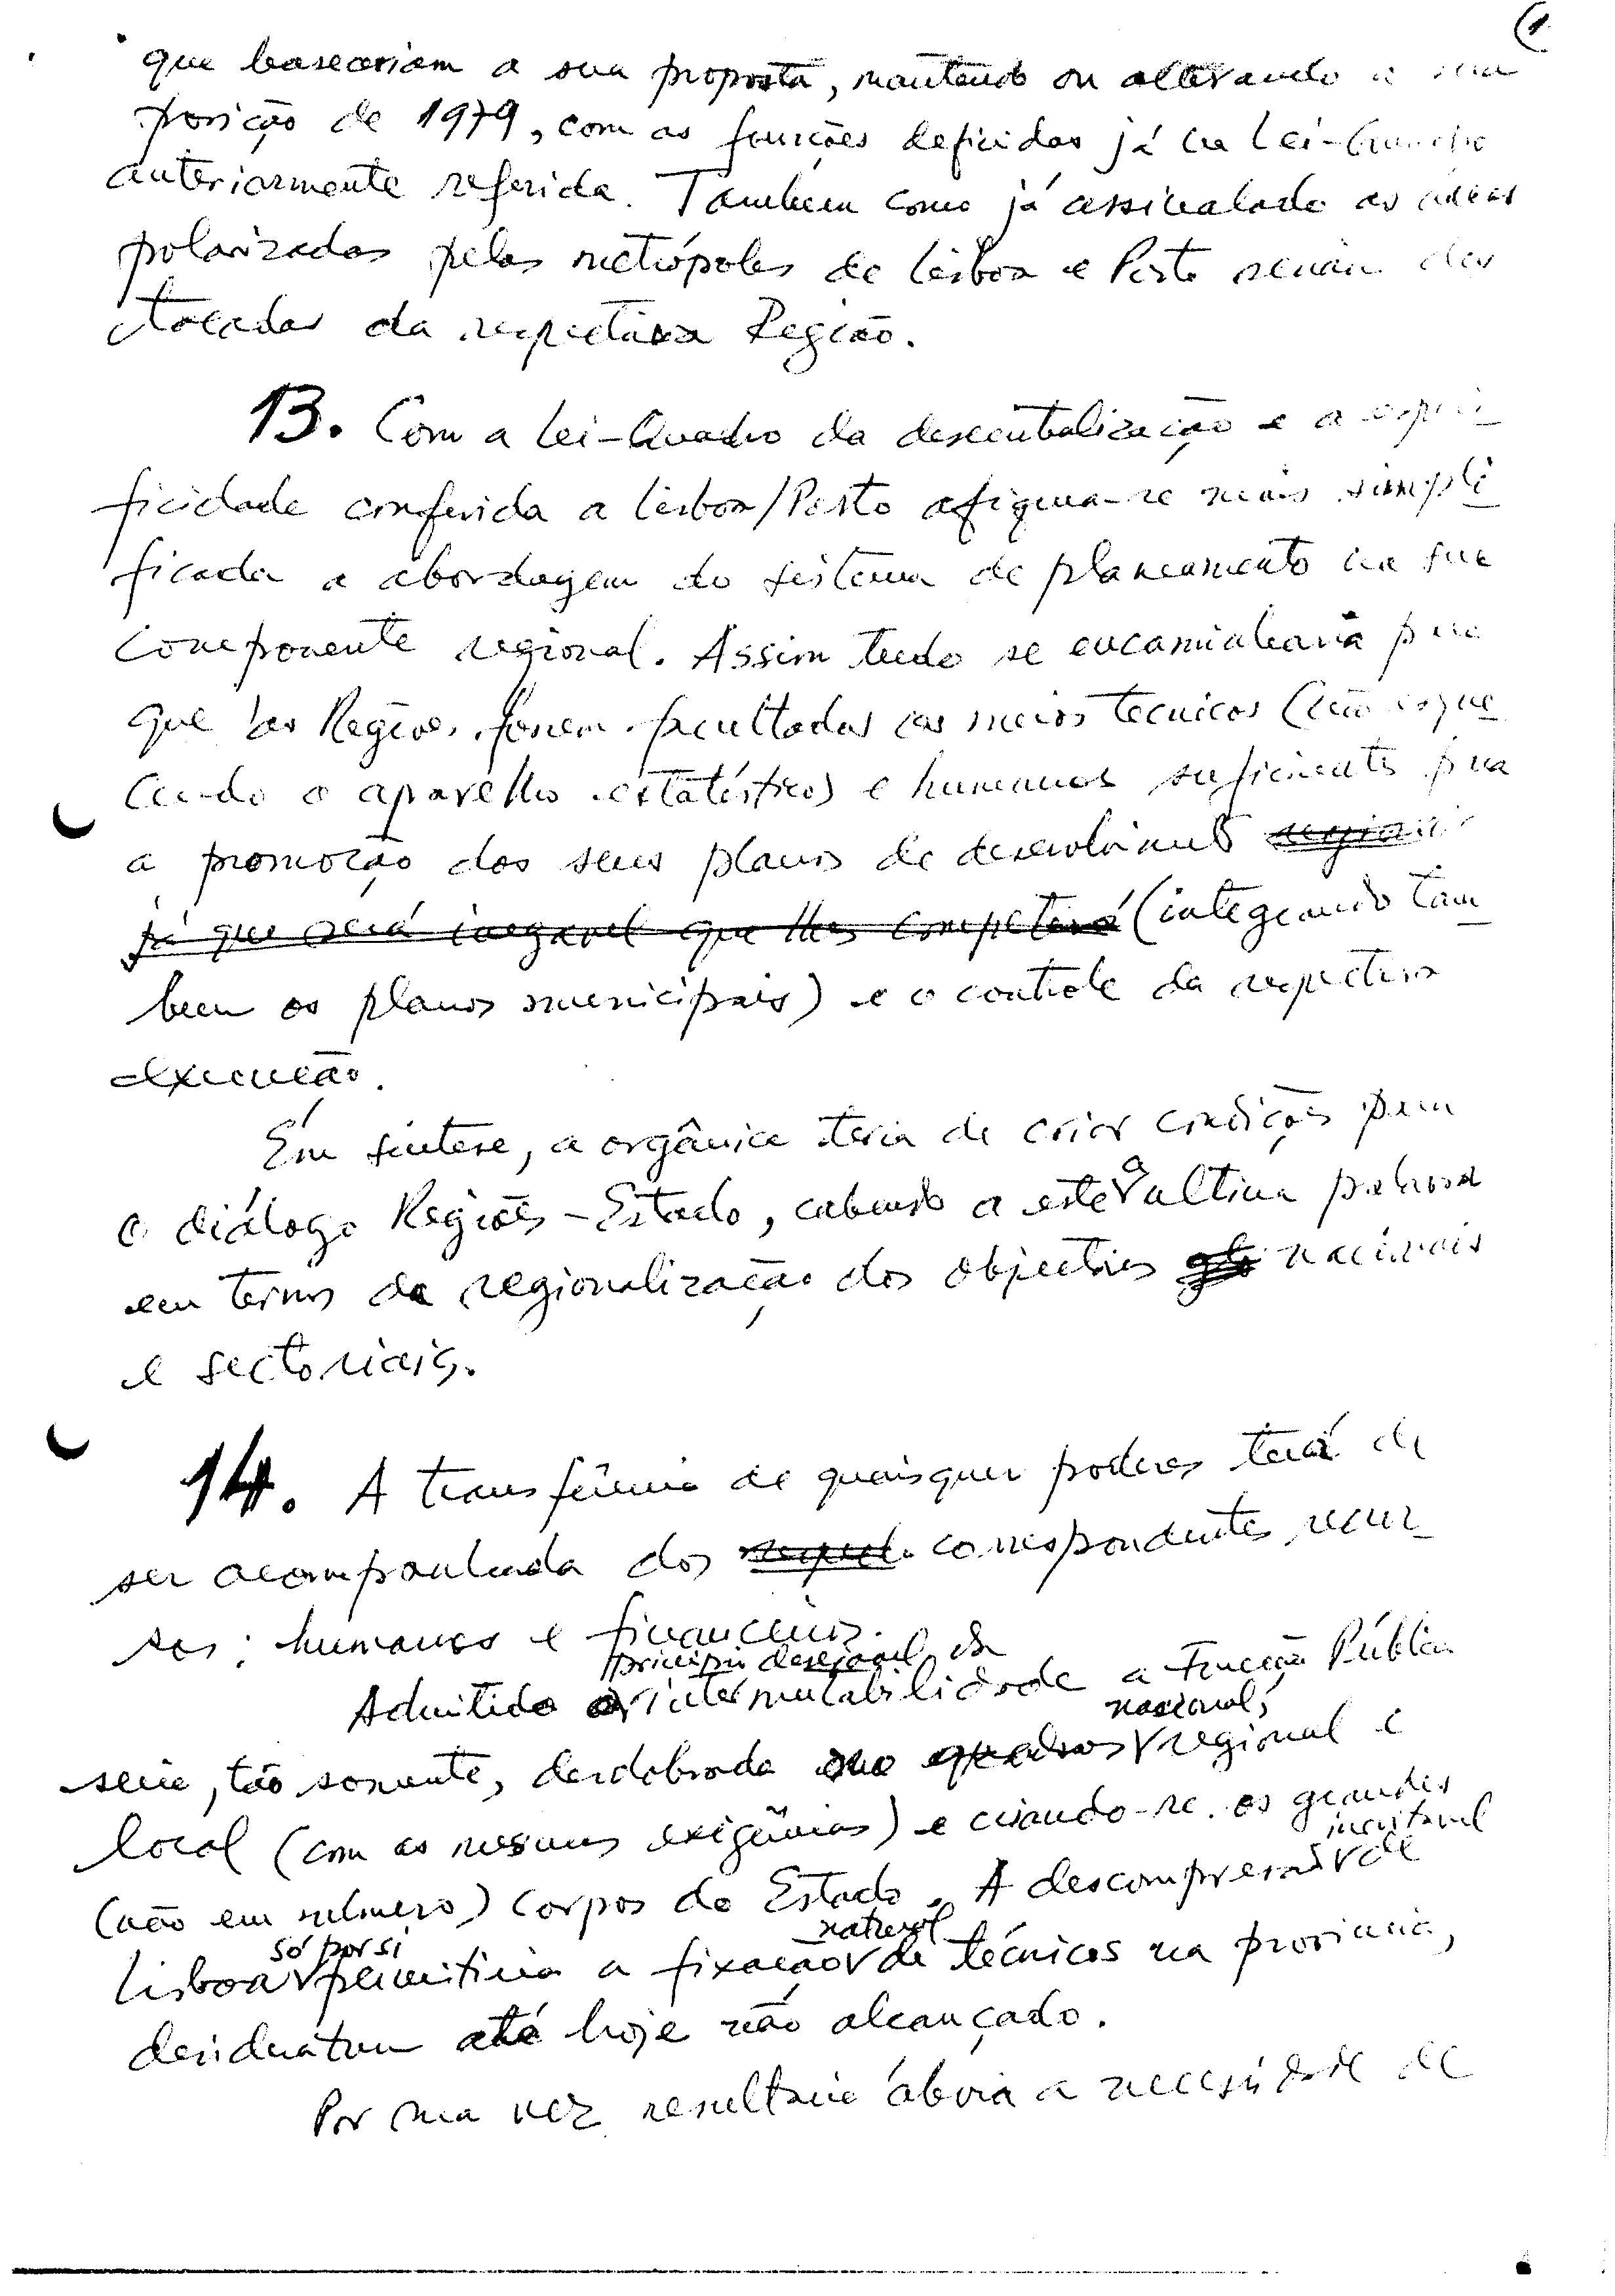 que baseariam a sua proposta, mantendo ou alterando a sua
posição de 1979, com as funções definidas já na Lei-Quadro
anteriormente referida. Também como já assinalado as áreas
polarizadas pelas metrópoles de Lisboa e Porto seriam des
tacadas da respectiva Região.
13. Com a Lei-Quadro da descentralização e a espe
ficidade conferida a Lisboa/Porto afigura-se mais simpli
ficada a abordagem do sistema de planeamento na sua
componente regional. Assim tudo se encaminharia para
que às Regiões fossem facultados os meios técnicos (não esque
cendo o aparelho estatístico) e humanos suficientes para
a promoção dos seus planos de desenvolvimento regional
já que será inegável que lhes competirá (integrando tam
bem os planos municipais) e o controle da respectiva
execução.
Em síntese, a orgânica teria de criar condições para
o diálogo Regiões-Estado, cabendo a este a última palavra
em termos da regionalização dos objectivos nacionais
e sectoriais.
14. A transferência de quaisquer poderes terá de
ser acompanhada dos correspondentes recur
sos: humanos e financeiros.
princípio desejável da
Admitido o intermutabilidade a Função Pública
nacional,
seria, tão somente, desdobrada regional e
local (com as mesmas exigências) e criando-se os grandes
inevitável
(não em número) corpos do Estado. A descompressão de
só por si natural
Lisboa permitiria a fixação de técnicos na província,
desideratum até hoje não alcançado.
Por sua vez resultaria óbvia a necessidade de